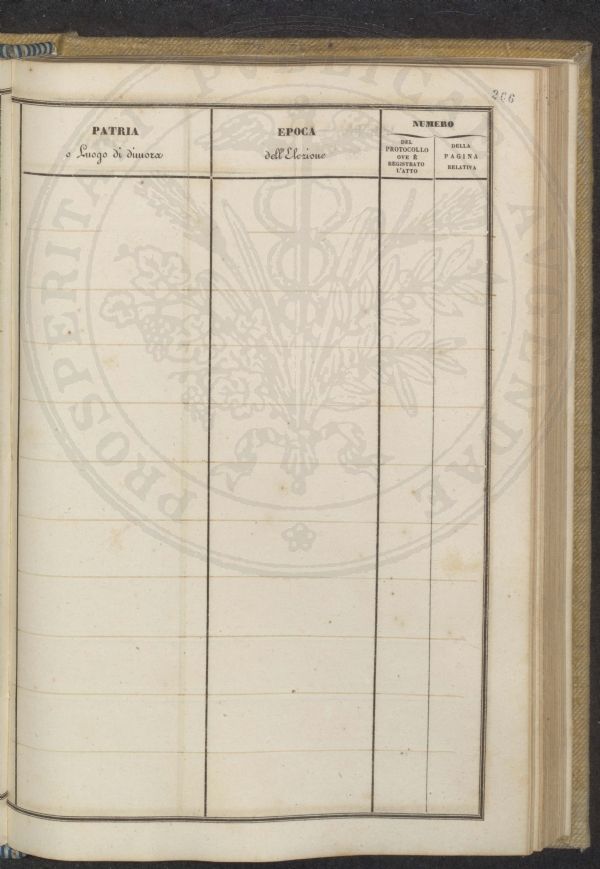 266
PATRIA
o Luogo di dimora
EPOCA
dell'Elezione
NUMERO
DEL
PROTOCOLLO
OVE È
REGISTRATO
L'ATTO
DELLA
PAGINA
RELATIVA
PROSPERITATI PVBLICAE AVGENDAE